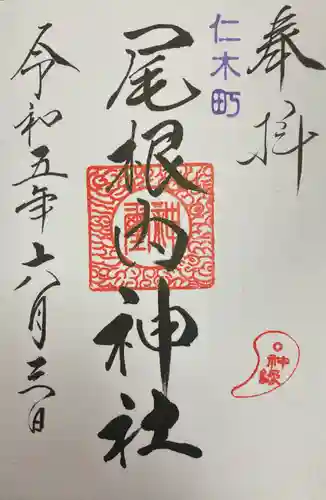 奉拝
仁木町
尾根内神社
令和五年十八月三日